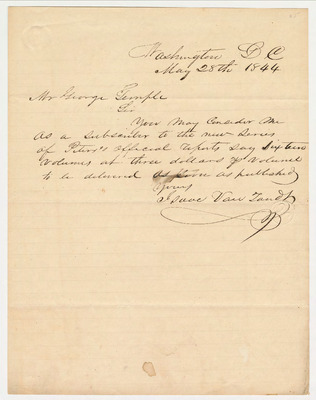 Washington D C
May 28th 1844
Mr George Temple
Sir
You May Consider Me
As a Subscriber to the new Series
of Peters's Official reports say Sixteen
volumes at three dollars pr volume
to be delivered as soon as published
Yours
Isaac Van Zandt